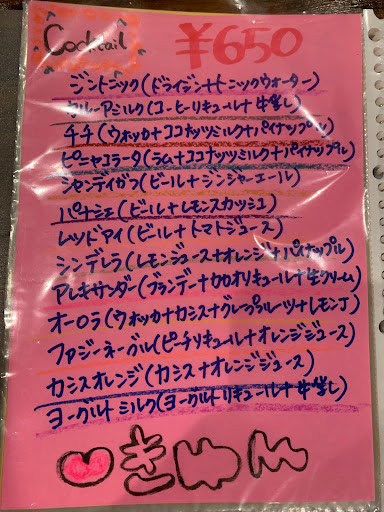 Cocktail ¥650
ジントニック(ドライジン+トニックウォーター)
カルーアミルク(コーヒーリキュール+牛乳)
チチ(ウォッカ+ココナッツミルク+パイナップル)
ピニャコラータ(ラム+ココナッツミルク+パイナップル)
シャンディガフ(ビール+ジンジャーエール)
パナシェ(ビール+レモンスカッシュ)
レッドアイ(ビール+トマトジュース)
シンデレラ(レモンジュース+オレンジ+パイナップル)
アレキサンダー(ブランデー+カカオリキュール+生クリーム)
オーロラ(ウォッカ+カシス+グレープフルーツ+レモンJ)
ファジーネーブル(ピーチリキュール+オレンジジュース)
カシスオレンジ(カシス+オレンジジュース)
ヨーグルトミルク(ヨーグルトリキュール+牛乳)
きゅん